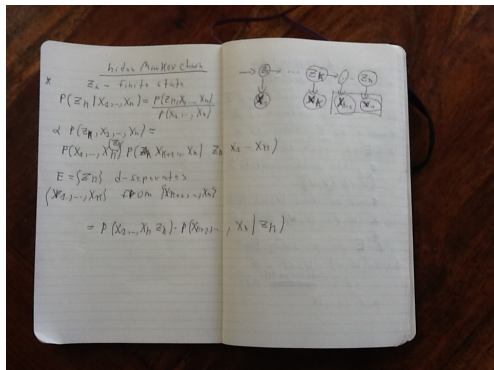 hiden Markov Chain
z_k - finite state
P(z_k | x_1, ..., x_n) = P(z_k, x_1 ... x_n) / P(x_1, ..., x_n)
α P(z_k, x_1, ..., x_n) =
P(x_1, ..., x_k, z_k) P( x_k+1, ..., x_n | z_k x_1 - x_k)
E = {z_k} d-separates
{x_1, ..., x_k} from {x_k+1, ..., x_n}
= P(x_1, ..., x_k z_k) · P(x_k+1, ..., x_n | z_k)
→ z → ... z_k → z_n
x_1 x_k x_k+1 x_n